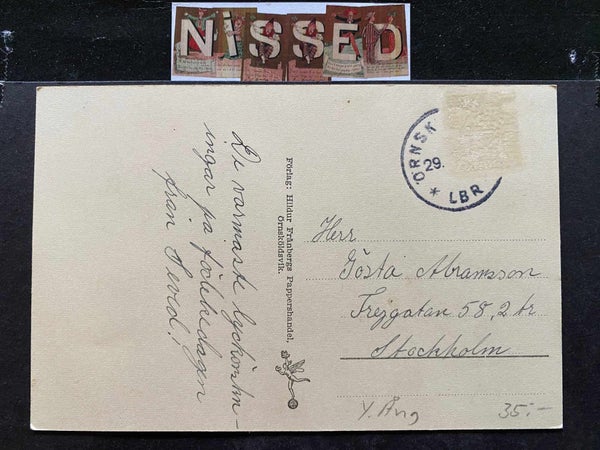 NiSSED
De varmaste lyckönskn-
ingar på födelsedagen
från Seved!
Förlag: Hildur Frånbergs Pappershandel,
Örnsköldsvik.
ÖRNSK
29.
* LBR
Herr
Gösta Abramsson
Frejgatan 58, 2 tr
Stockholm
Y. Ång
35:-